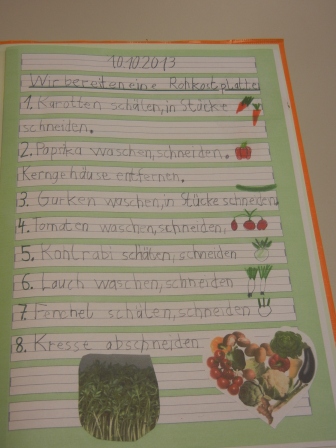 10.10.2013
Wir bereiten eine Rohkostplatte
1. Karotten schälen, in Stücke
schneiden.
2. Paprika waschen, schneiden.
Kerngehäuse entfernen.
3. Gurken waschen, in Stücke schneiden
4. Tomaten waschen, schneiden,
5. Kohlrabi schälen, schneiden
6. Lauch waschen, schneiden
7. Fenchel schälen, schneiden
8. Kresse abschneiden